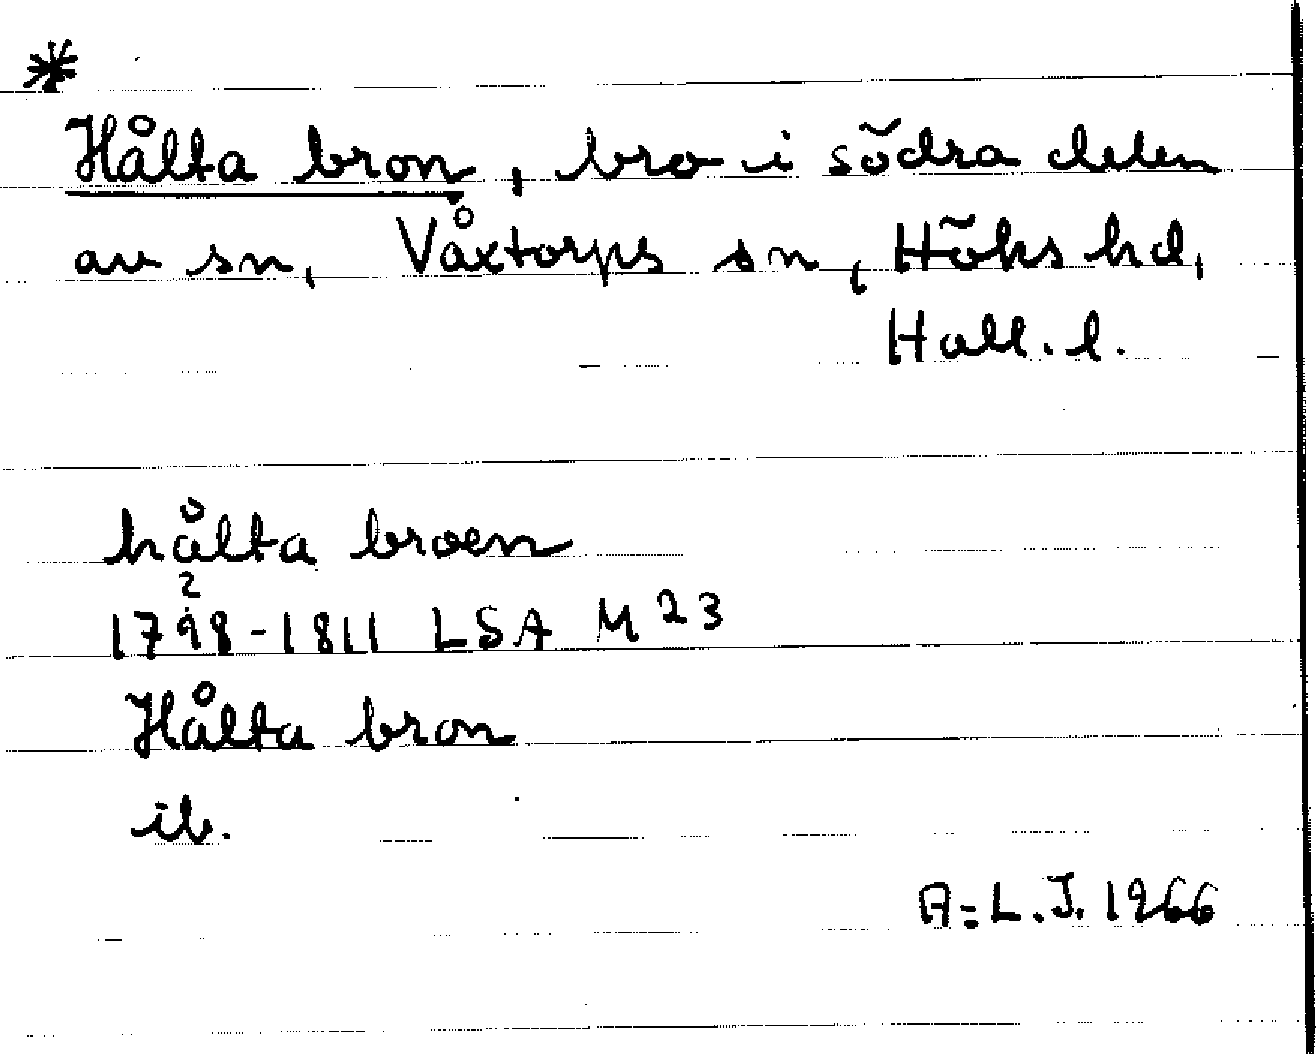 *
Hålta bron, bro i södra delen
av sn, Våxtorps sn, Höks hd,
Hall. l.
hålta broen
2
1798-1811 LSA M 23
Hålta bron
ib.
A-L.J. 1966